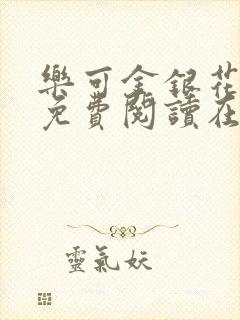 樂可金銀花
免費閱讀在
靈氣妖